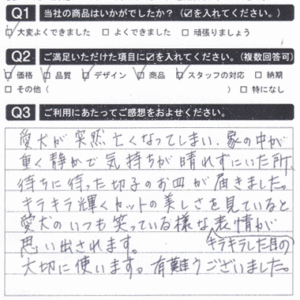 Q1 当社の商品はいかがでしたか?(☑を入れてください。)
☑大変よくできました □よくできました □頑張りましょう
Q2 ご満足いただけた項目に☑を入れてください。(複数回答可)
☑価格 ☑品質 ☑デザイン ☑商品 ☑スタッフの対応 □納期
□その他( ) □特になし
Q3 ご利用にあたってご感想をおよせください。
愛犬が突然亡くなってしまい、家の中が
重く静かで気持ちが晴れずにいた所
待ちに待った切子のお皿が届きました。
キラキラ輝くカットの美しさを見ていると
愛犬のいつも笑っている様な表情が
思い出されます。 キラキラした目の
大切に使います。有難うございました。